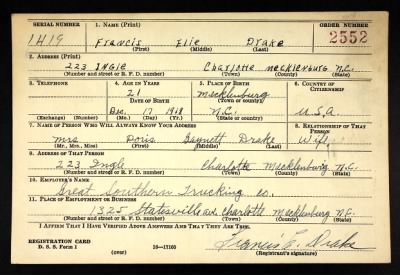 SERIAL NUMBER 1. NAME (Print) ORDER NUMBER
1419 Francis Elie Drake 2552
(First) (Middle) (Last)
2. ADDRESS (Print)
223 Ingle Charlotte Mecklenburg N.C.
(Number and street or R. F. D. number) (Town) (County) (State)
3. TELEPHONE 4. AGE IN YEARS 5. PLACE OF BIRTH 6. COUNTRY OF CITIZENSHIP
21 Mecklenburg
DATE OF BIRTH (Town or county)
Dec. 17 1918 N.C. U.S.A
(Exchange) (Number) (Mo.) (Day) (Yr.) (State or country)
7. NAME OF PERSON WHO WILL ALWAYS KNOW YOUR ADDRESS 8. RELATIONSHIP OF THAT PERSON
Mrs Doris Drake Wife
(Mr., Mrs., Miss) (First) (Middle) (Last)
9. ADDRESS OF THAT PERSON
223 Ingle Charlotte Mecklenburg N.C.
(Number and street or R. F. D. number) (Town) (County) (State)
10. EMPLOYER'S NAME
Great Southern Trucking Co.
11. PLACE OF EMPLOYMENT OR BUSINESS
1325 Statesville ave. Charlotte Mecklenburg N.C.
(Number and street or R. F. D. number) (Town) (County) (State)
I AFFIRM THAT I HAVE VERIFIED ABOVE ANSWERS AND THAT THEY ARE TRUE.
REGISTRATION CARD
D. S. S. Form 1 (over) 16—17105 Francis E. Drake
(Registrant's signature)